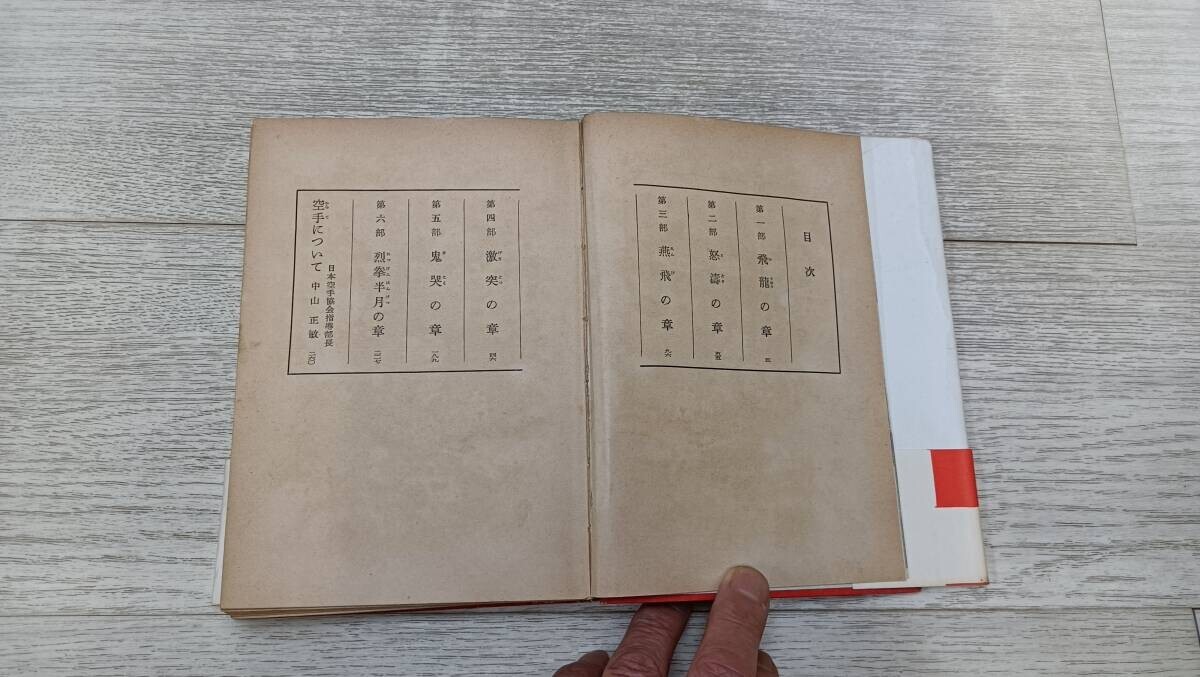 目次
第一部 飛龍の章
第二部 怒濤の章
第三部 燕飛の章 九六
第四部 激突の章
第五部 鬼哭の章 一八九
第六部 烈拳半月の章
空手について 日本空手協会指導部長 中山正敏